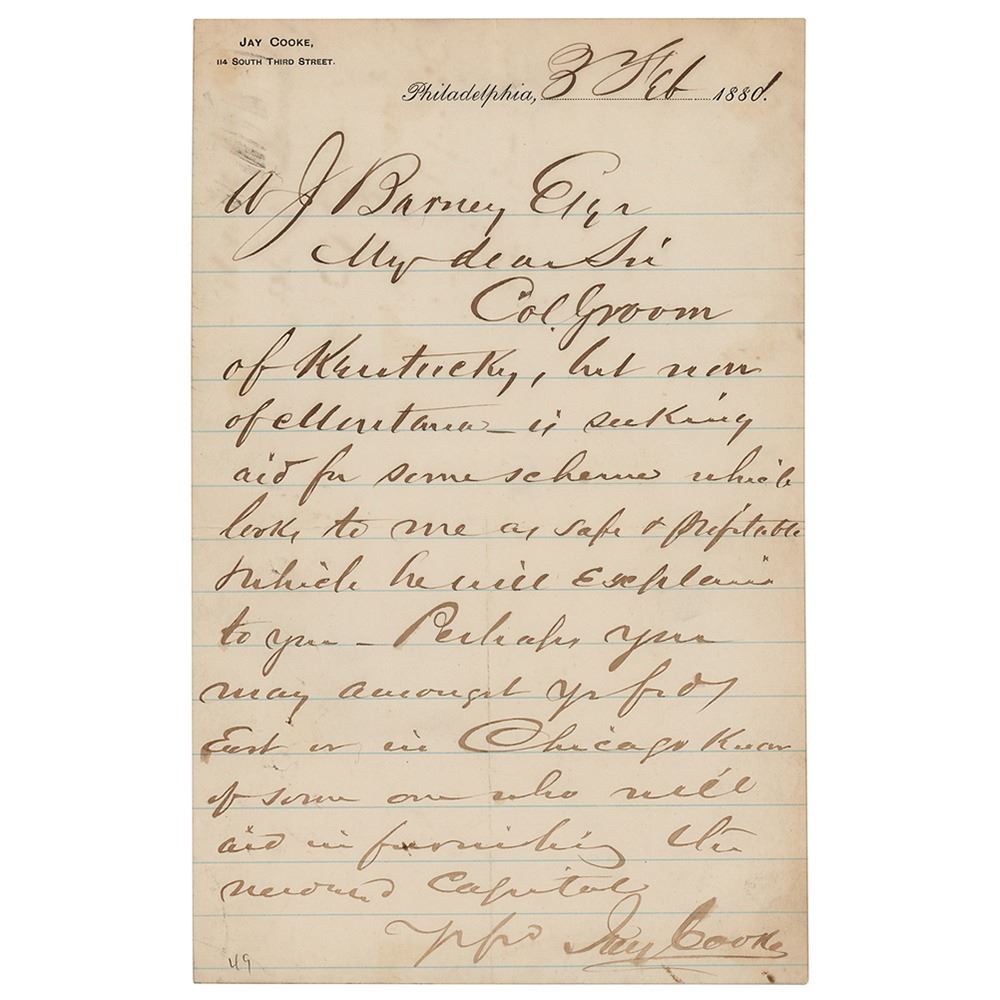 JAY COOKE,
114 SOUTH THIRD STREET.
Philadelphia, 3 Feb 1881.
W J Barney Esqr
My dear Sir
Col. Groom
of Kentucky, but now
of Montana - is seeking
aid for some scheme which
looks to me as safe & profitable
which he will explain
to you - Perhaps you
may amongst yr frds
East or in Chicago know
of some one who will
aid in furnishing the
Capital
yr frd Jay Cooke
49